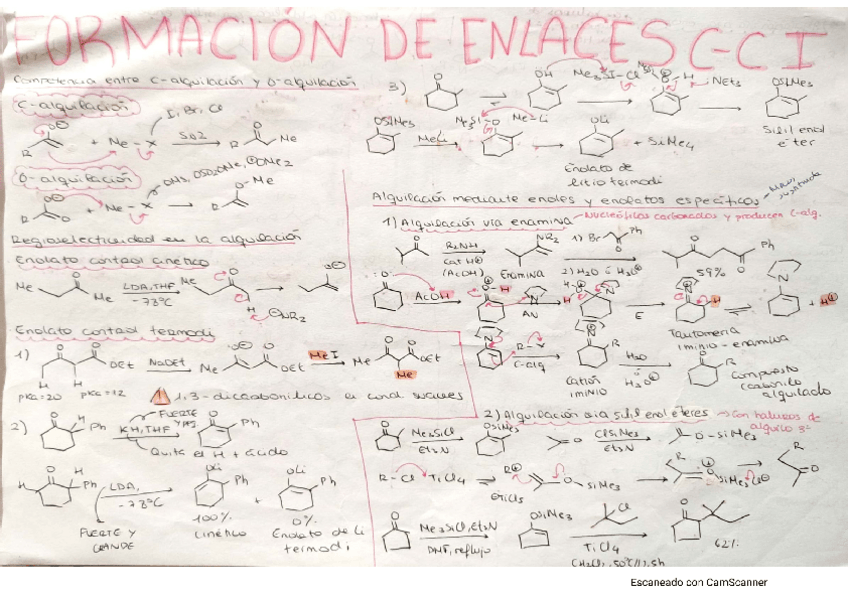 FORMACIÓN DE ENLACES C-C I
Competencia entre C-alquilación y O-alquilación
C-alquilación
I, Br, Cl
R
+ Me-X
SN2
R
Me
O-alquilación
OMs, OSO2OMe, ⊕OMe2
R
+ Me-X
R
O-Me
Regioselectividad en la alquilación
Enolato control cinético
Me
Me
LDA, THF
-78ºC
Me
H
⊖NR2
Enolato control termodi
1)
OEt
NaOEt
Me
OEt
MeI
Me
OEt
Me
H
H
pKa=20
pKa=12
1,3-dicarbonílicos en cond suaves
2)
H
Ph
KH, THF
FUERTE
Ph
Quita el H + ácido
H
H
Ph
LDA,
-78ºC
FUERTE Y
GRANDE
OLi
Ph
+
OLi
Ph
100%
cinético
0%
Enolato de Li
termodi
3)
O
OH
Me3Si-Cl
H
NEt3
OSiMe3
Silil enol
éter
OSiMe3
MeLi
Me3Si-O
Me-Li
OLi
+ SiMe4
Enolato de
litio termodi
Alquilación mediante enoles y enolatos específicos
1) Alquilación vía enamina
Nucleófilos carbonados y producen C-alq.
R2NH
cat H⊕
(AcOH)
NR2
Enamina
1) Br
Ph
2) H2O ó H3O⊕
Ph
59%
AcOH
AN
E
+ H⊕
Tautomería
iminio-enamina
R-X
C-alq
R
catión
iminio
H2O
ó
H3O⊕
R
compuesto
carbonilo
alquilado
2) Alquilación vía silil enol éteres
con haluros de
alquilo 3º
Me3SiCl
Et3N
OSiMe3
ClSiMe3
Et3N
O-SiMe3
R-Cl
TiCl4
R⊕
O-SiMe3
SiMe3
Cl⊖
R
O
Me3SiCl, Et3N
DMF, reflujo
OSiMe3
Cl
TiCl4
62%
Escaneado con CamScanner